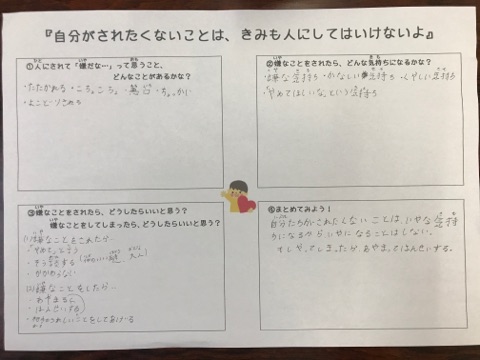 『自分がされたくないことは、きみも人にしてはいけないよ』
①人にされて「嫌だな…」って思うこと、
どんなことがあるかな？
・たたかれる ・こちょこちょ ・無
②嫌なことをされたら、どんな気持ちになるかな？
・嫌な気持ち ・かなしい気持ち ・くやしい気持ち
・"やめてほしいな"という気持ち
③嫌なことをされたら、どうしたらいいと思う？
嫌なことをしてしまったら、どうしたらいいと思う？
(1)嫌なことをされたら…
・「やめて」と言う
・そう談する 大人
・かかわらない
(2)嫌なことをしたら…
・あやまる
・はんせいする
うれしいことをしてあげる
④まとめてみよう！
自分たちがされたくないことは、いやな気持
ちになるから いやになることはしない。
もしやってしまったら、あやまってはんせいする。